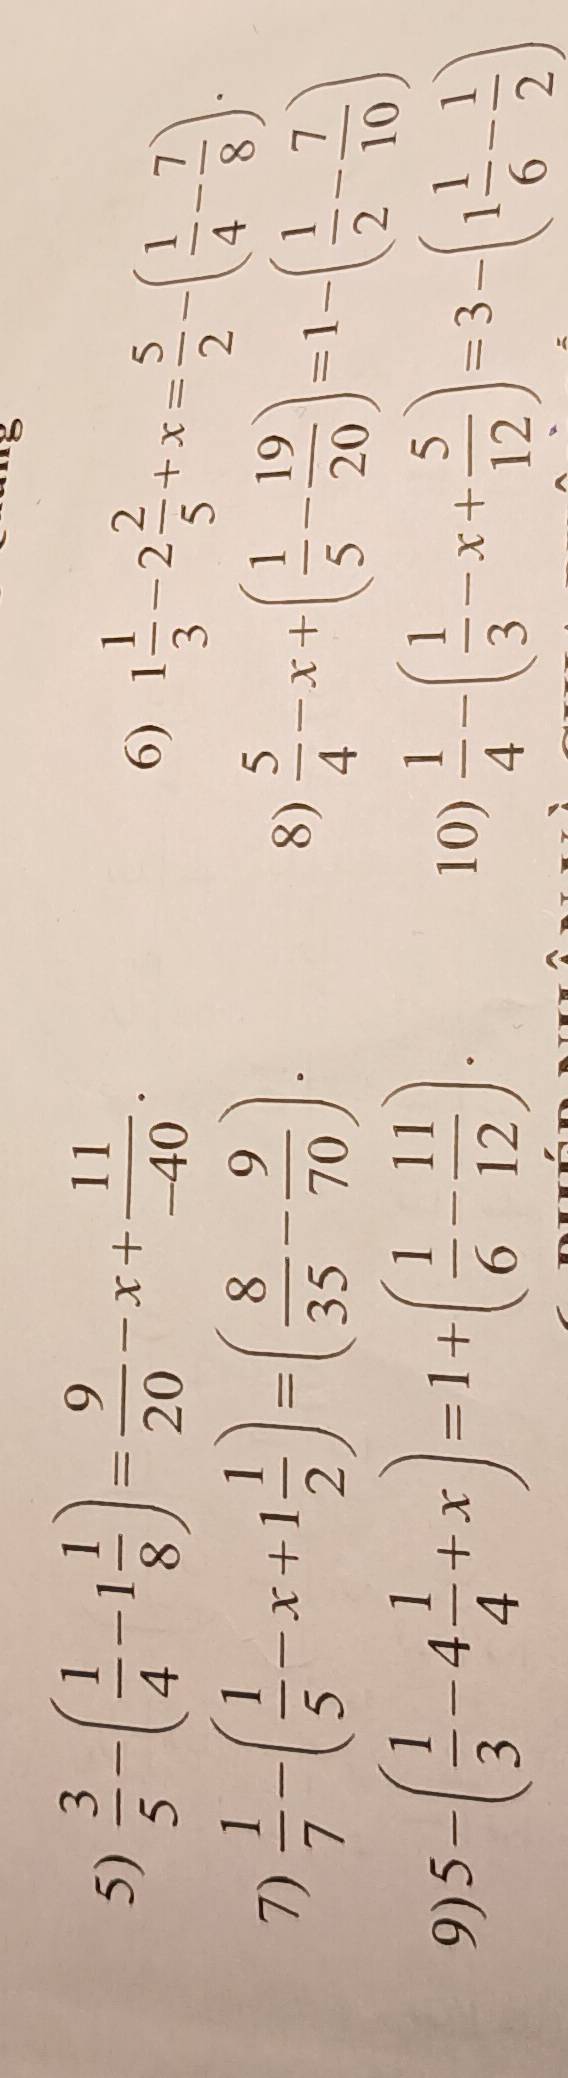 5) 3/5 − (1/4 − 1 1/8) = 9/20 − x + 11/−40. 6) 1 1/3 − 2 2/5 + x = 5/2 − (1/4 − 7/8).
7) 1/7 − (1/5 − x + 1 1/2) = (8/35 − 9/70). 8) 5/4 − x + (1/5 − 19/20) = 1 − (1/2 − 7/10)
9) 5 − (1/3 − 4 1/4 + x) = 1 + (1/6 − 11/12). 10) 1/4 − (1/3 − x + 5/12) = 3 − (1 1/6 − 1/2)